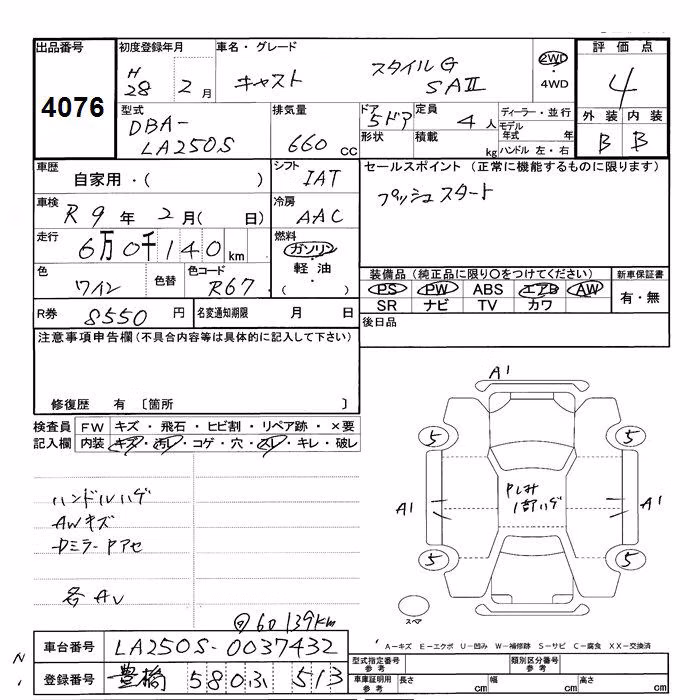 出品番号 初度登録年月 車名・グレード 評価点
4076 H28 2月 キャスト スタイルG SAⅡ 2WD・4WD 4
型式 排気量 ドア 定員 ディーラー・並行 外装 内装
DBA-LA250S 660cc 5ドア 4人 モデル年式 年 B B
形状 積載 kg ハンドル 左・右
車歴 シフト セールスポイント (正常に機能するものに限ります)
自家用・( ) IAT プッシュスタート
車検 冷房
R9年 2月( 日) AAC
走行 燃料
6万0千140km ガソリン・軽油・( )
装備品 (純正品に限り○をつけてください) 新車保証書
色 色替 色コード PS PW ABS エアB AW 有・無
ワイン R67 SR ナビ TV カワ
R券 8550円 名変通知期限 月 日 後日品
注意事項申告欄(不具合内容等は具体的に記入して下さい)
修復歴 有 〔箇所 〕
検査員記入欄 FW キズ・飛石・ヒビ割・リペア跡・×要
内装 キズ・汚レ・コゲ・穴・スレ・キレ・破レ
A1
5 5
ハンドルハゲ
AWキズ
A1 A1
5 5
各AU
60139km
スペア
車台番号 LA250S-0037432
A-キズ E-エクボ U-凹み W-補修跡 S-サビ C-腐食 XX-交換済
登録番号 豊橋 580 ふ 513
型式指定番号 参考 類別区分番号 参考
車庫証明用 参考 長さ cm 幅 cm 高さ cm